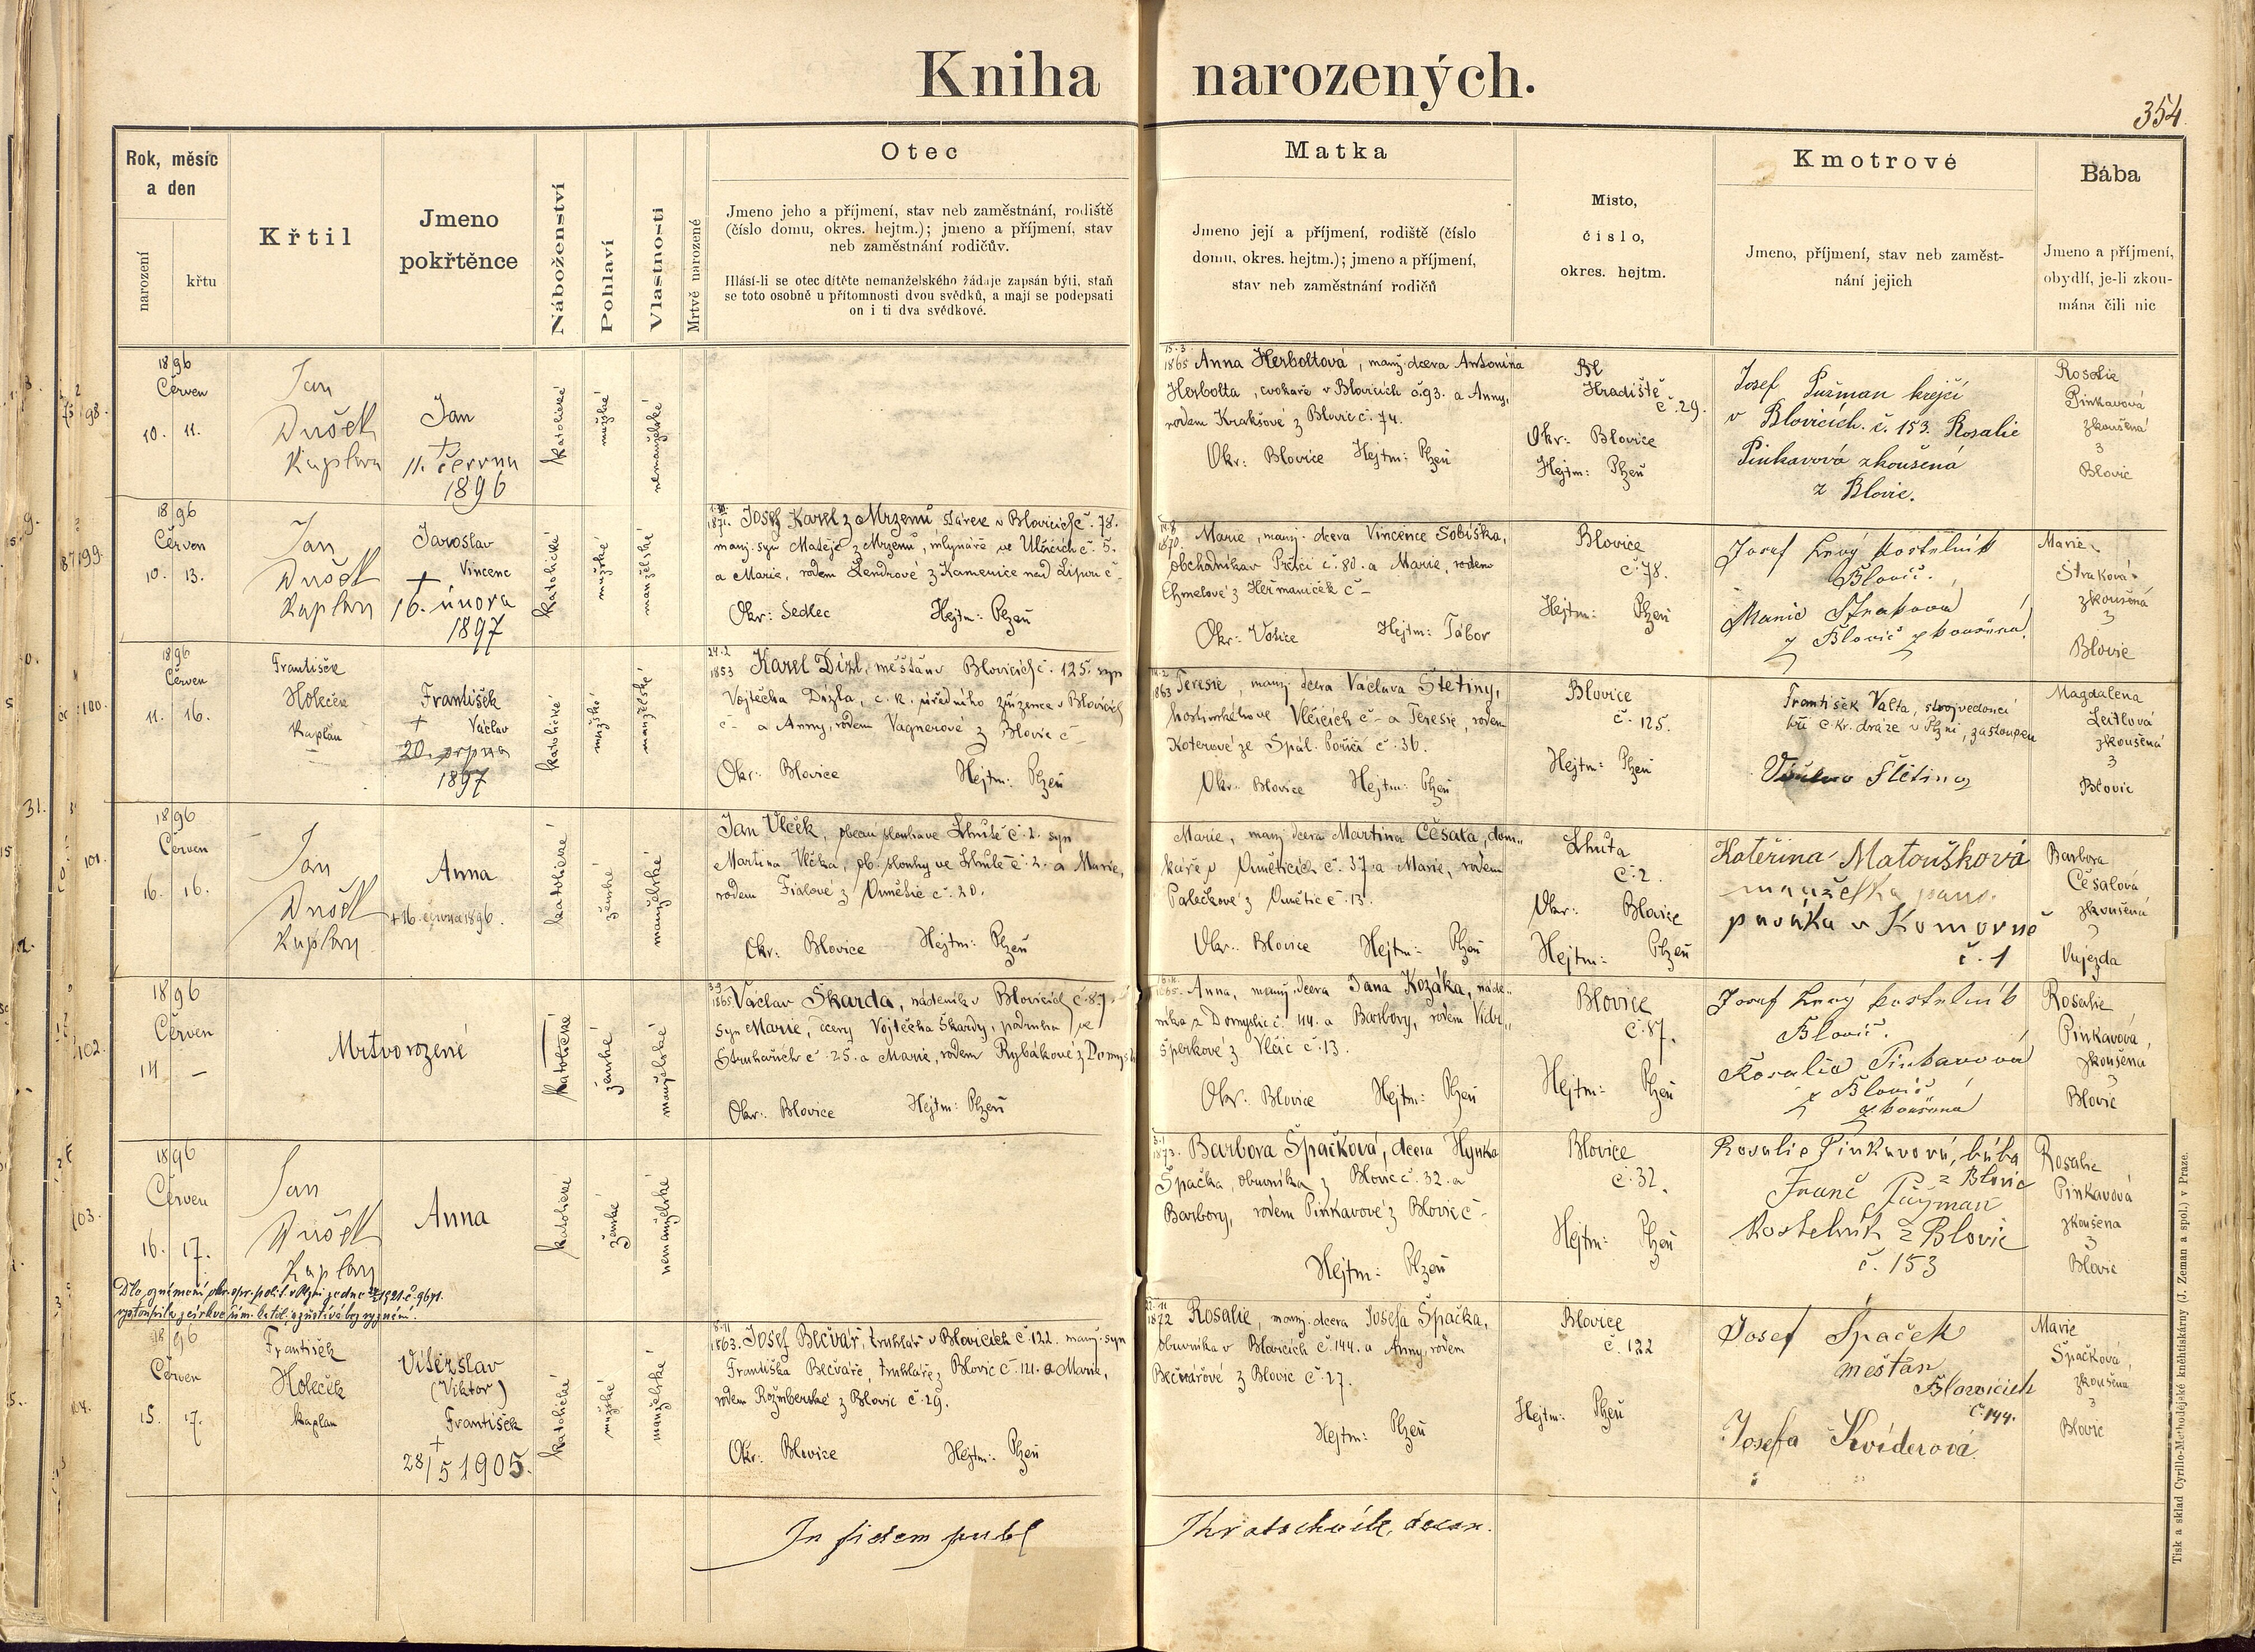 Kniha narozených.
354
Rok, měsíc
a den
narození
křtu
Křtil
Jmeno
pokřtěnce
Náboženství
Pohlaví
Vlastnosti
Mrtvě narozené
Otec
Jmeno jeho a příjmení, stav neb zaměstnání, rodiště
(číslo domu, okres. hejtm.); jmeno a příjmení, stav
neb zaměstnání rodičův.
Hlásí-li se otec dítěte nemanželského žádaje zapsán býti, staň
se toto osobně u přítomnosti dvou svědků, a mají se podepsati
on i ti dva svědkové.
Matka
Jmeno její a příjmení, rodiště (číslo
domu, okres. hejtm.); jmeno a příjmení,
stav neb zaměstnání rodičů
Místo,
číslo,
okres. hejtm.
Kmotrové
Jmeno, příjmení, stav neb zaměst-
nání jejich
Bába
Jmeno a příjmení,
obydlí, je-li zkou-
mána čili nic
98.
1896
Červen
10. 11.
Jan
Dušek
Kaplan
Jan
+
11. června
1896
katolické
mužské
nemanželské
15.3
1865 Anna Herboltová, manž. dcera Antonína
Herbolta, cvokaře v Blovicích č. 93. a Anny,
rodem Krakšové z Blovic č. 74.
Okr: Blovice Hejtm: Plzeň
Bl
Hradiště
č. 29.
Okr: Blovice
Hejtm: Plzeň
Josef Pužman krejčí
v Blovicích. č. 153. Rosalie
Pinkavová zkoušená
z Blovic.
Rosalie
Pinkavová
zkoušená
z
Blovic
99.
1896
Červen
10. 13.
Jan
Dušek
Kaplan
Jaroslav
Vincenc
+
16. února
1897
katolické
mužské
manželské
1871. Josef Karel z Mrzenů, stárek v Blovicích č. 78.
manž. syn Matěje z Mrzenů, mlynáře ve Vlčicích č. 5.
a Marie, rodem Lendrové z Kamenice nad Lipou č –
Okr: Sedlec Hejtm: Plzeň
1870 Marie, manž. dcera Vincence Sobíška,
obchodníka v Prčici č. 80. a Marie, rodem
Chmelové z Heřmaniček č –
Okr: Votice Hejtm: Tábor
Blovice
č. 78.
Hejtm: Plzeň
Josef kostelník
Blovic.
Marie Straková
z Blovic zkoušená
Marie
Straková
zkoušená
z
Blovic
100.
1896
Červen
11. 16.
František
Holeček
Kaplan
František
+ Václav
20. srpna
1897
katolické
mužské
manželské
24.2
1853 Karel Dízl, měšťan v Blovicích č. 125. syn
Vojtěcha Dízla, c. k. úředního zřízence v Blovicích
č – a Anny, rodem Vagnerové z Blovic č –
Okr: Blovice Hejtm: Plzeň
1863 Teresie, manž. dcera Václava Štětiny,
hostinského ve Vlčicích č – a Teresie, rodem
Koterové ze Spál. Poříčí č. 36.
Okr: Blovice Hejtm: Plzeň
Blovice
č. 125.
Hejtm: Plzeň
František Valta, strojvedoucí
při c. kr. dráze v Plzni, zastoupen
Štětiny
Magdalena
Leitlová
zkoušená
z
Blovic
101.
1896
Červen
16. 16.
Jan
Dušek
Kaplan
Anna
+ 16. června 1896.
katolické
ženské
manželské
Jan Vlček, obecní slouha ve Lhutě č. 2. syn
Martina Vlčka, ob. slouhy ve Lhutě č. 2. a Marie,
rodem Fialové z Vimětic č. 20.
Okr: Blovice Hejtm: Plzeň
Marie, manž dcera Martina Česala, dom-
káře v Uměticích č. 37 a Marie, rodem
Palečkové z Umětic č. 13.
Okr: Blovice Hejtm: Plzeň
Lhuta
č. 2.
Okr: Blovice
Hejtm: Plzeň
Kateřina Matoušková
manželka pans.
v Komorně
č. 1
Barbora
Česalová
zkoušená
z
Vujezda
102.
1896
Červen
14 –
Mrtvorozené
katolické
ženské
manželské
3.9
1865 Václav Škarda, nádeník v Blovicích č. 87.
syn Marie, dcery Vojtěcha Škardy, podruha ve
Struhařích č. 25. a Marie, rodem Rybákové z Domysl
Okr: Blovice Hejtm: Plzeň
1865. Anna, manž. dcera Jana Kozáka, náde-
níka z Domyslic č. 44. a Barbory, rodem Vidr-
šperkové z Vlčic č. 13.
Okr: Blovice Hejtm: Plzeň
Blovice
č. 87.
Hejtm: Plzeň
Josef kostelník
Blovic.
Rosalie Pinkavová
z Blovic
zkoušená
Rosalie
Pinkavová,
zkoušená
z
Blovic
103.
1896
Červen
16. 17.
Jan
Dušek
Kaplan
Anna
katolické
ženské
nemanželské
1873. Barbora Špačková, dcera Hynka
Špačka, obuvníka z Blovic č. 32. a
Barbory, rodem Pinkavové z Blovic č –
Hejtm: Plzeň
Blovice
č. 32.
Hejtm: Plzeň
Rosalie Pinkavová, bába
z Blovic
Franc Pužman
Kostelník z Blovic
č. 153
Rosalie
Pinkavová
zkoušena
z
Blovic
Dle oznámení okr. spr. polit. v Plzni ze dne 1921 č. 9671.
vystoupila z církve řím. katol. a zůstává bez vyznání.
1896
Červen
15. 17.
František
Holeček
kaplan
Vítězslav
(Viktor)
František
+
28/5 1905.
katolické
mužské
manželské
1863. Josef Bečvář, truhlář v Blovicích č. 122. manž. syn
Františka Bečváře, truhláře z Blovic č. 121. a Marie,
rodem Rožmberské z Blovic č. 29.
Okr: Blovice Hejtm: Plzeň
1872 Rosalie, manž. dcera Josefa Špačka,
obuvníka v Blovicích č. 144. a Anny, rodem
Bečvářové z Blovic č. 27.
Hejtm: Plzeň
Blovice
č. 122
Hejtm: Plzeň
Josef Špaček
mešťan
Blovicích
č. 144.
Josefa Kviderová
Marie
Špačková,
zkoušena
z
Blovic
In fidem publ
decan.
Tisk a sklad Cyrillo-Methodějské knihtiskárny (J. Zeman a spol.) v Praze.